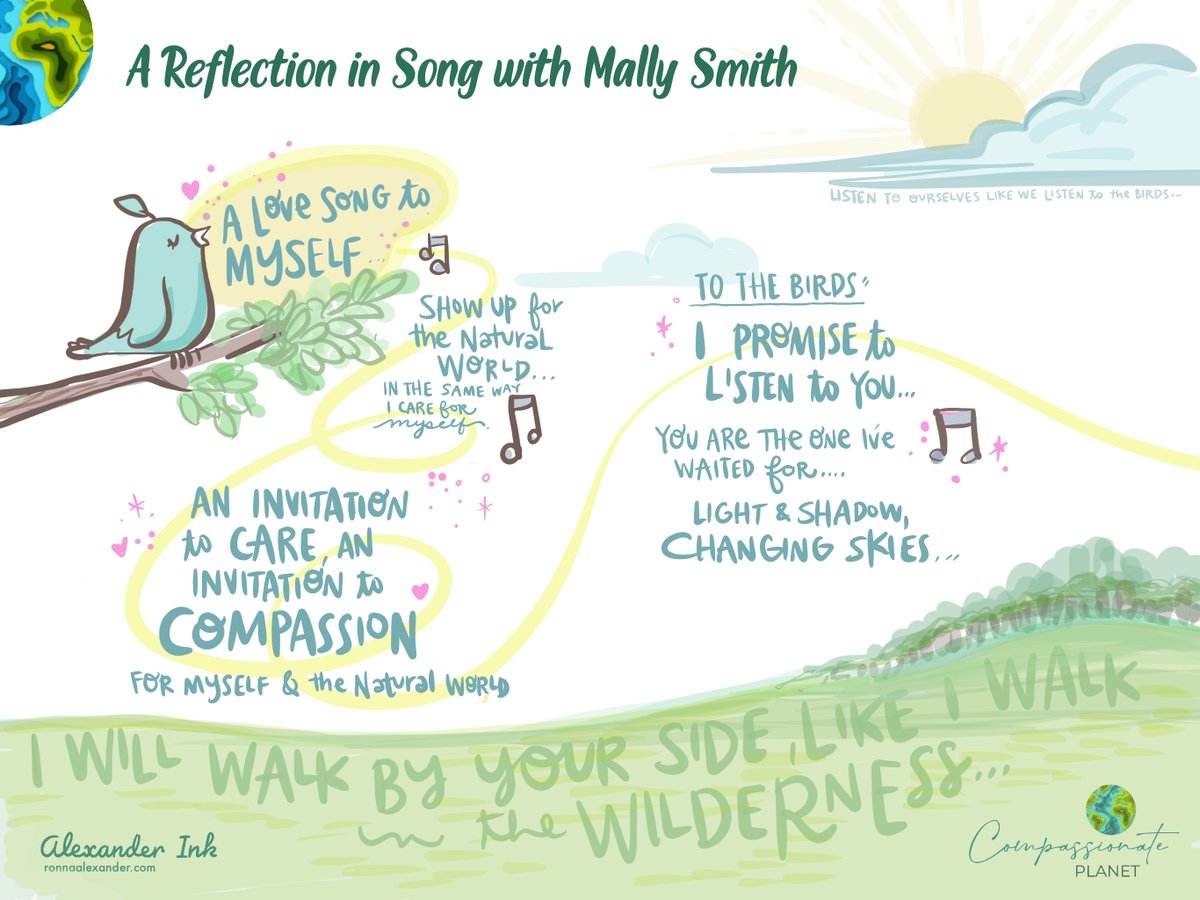 A Reflection in Song with Mally Smith
LISTEN TO OURSELVES LIKE WE LISTEN to the BIRDS...
A LOVE SONG to
MYSELF...
SHOW UP for
the NATURAL
WORLD...
IN THE SAME WAY
I CARE FOR
myself.
AN INVITATION
to CARE, AN
INVITATION to
COMPASSION
FOR MYSELF & the NATURAL WORLD
TO THE BIRDS"
I PROMISE to
LISTEN to YOU...
YOU ARE THE ONE I'VE
WAITED for....
LIGHT & SHADOW,
CHANGING SKIES...
I WILL WALK BY YOUR SIDE, LIKE I WALK
in the WILDERNESS...
Alexander Ink
ronnaalexander.com
Compassionate
PLANET